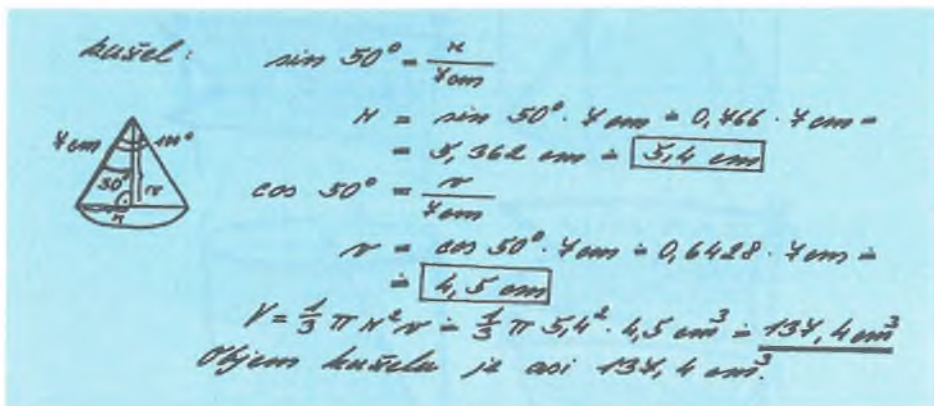 kužel: sin 50° = r / 7 cm
r = sin 50° · 7 cm ≐ 0,766 · 7 cm =
= 5,362 cm ≐ 5,4 cm
7 cm 100°
50° v
r
cos 50° = v / 7 cm
v = cos 50° · 7 cm ≐ 0,6428 · 7 cm ≐
≐ 4,5 cm
V = 1/3 π r² v ≐ 1/3 π 5,4² · 4,5 cm³ ≐ 137,4 cm³
Objem kužela je asi 137,4 cm³.